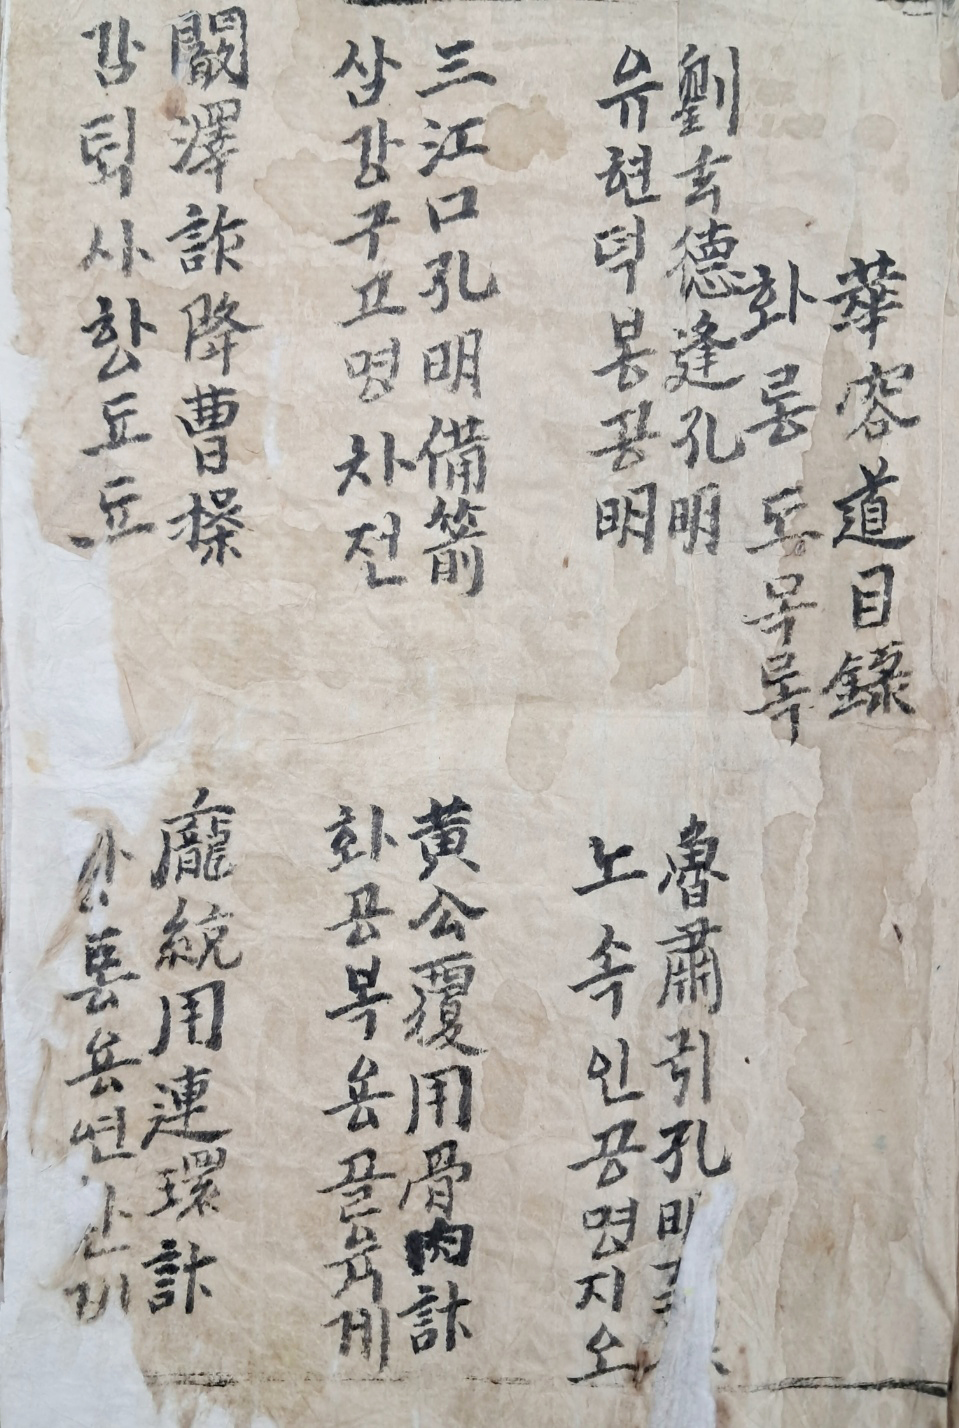 華容道目錄
화룡도목록
劉玄德逢孔明
유현덕봉공明
魯肅引孔明
노속인공명지오
三江口孔明備箭
삼강구고명차전
黃公覆用骨肉計
화공복용골육계
闞澤詐降曹操
감퇵사항됴됴
龐統用連環計
통용년